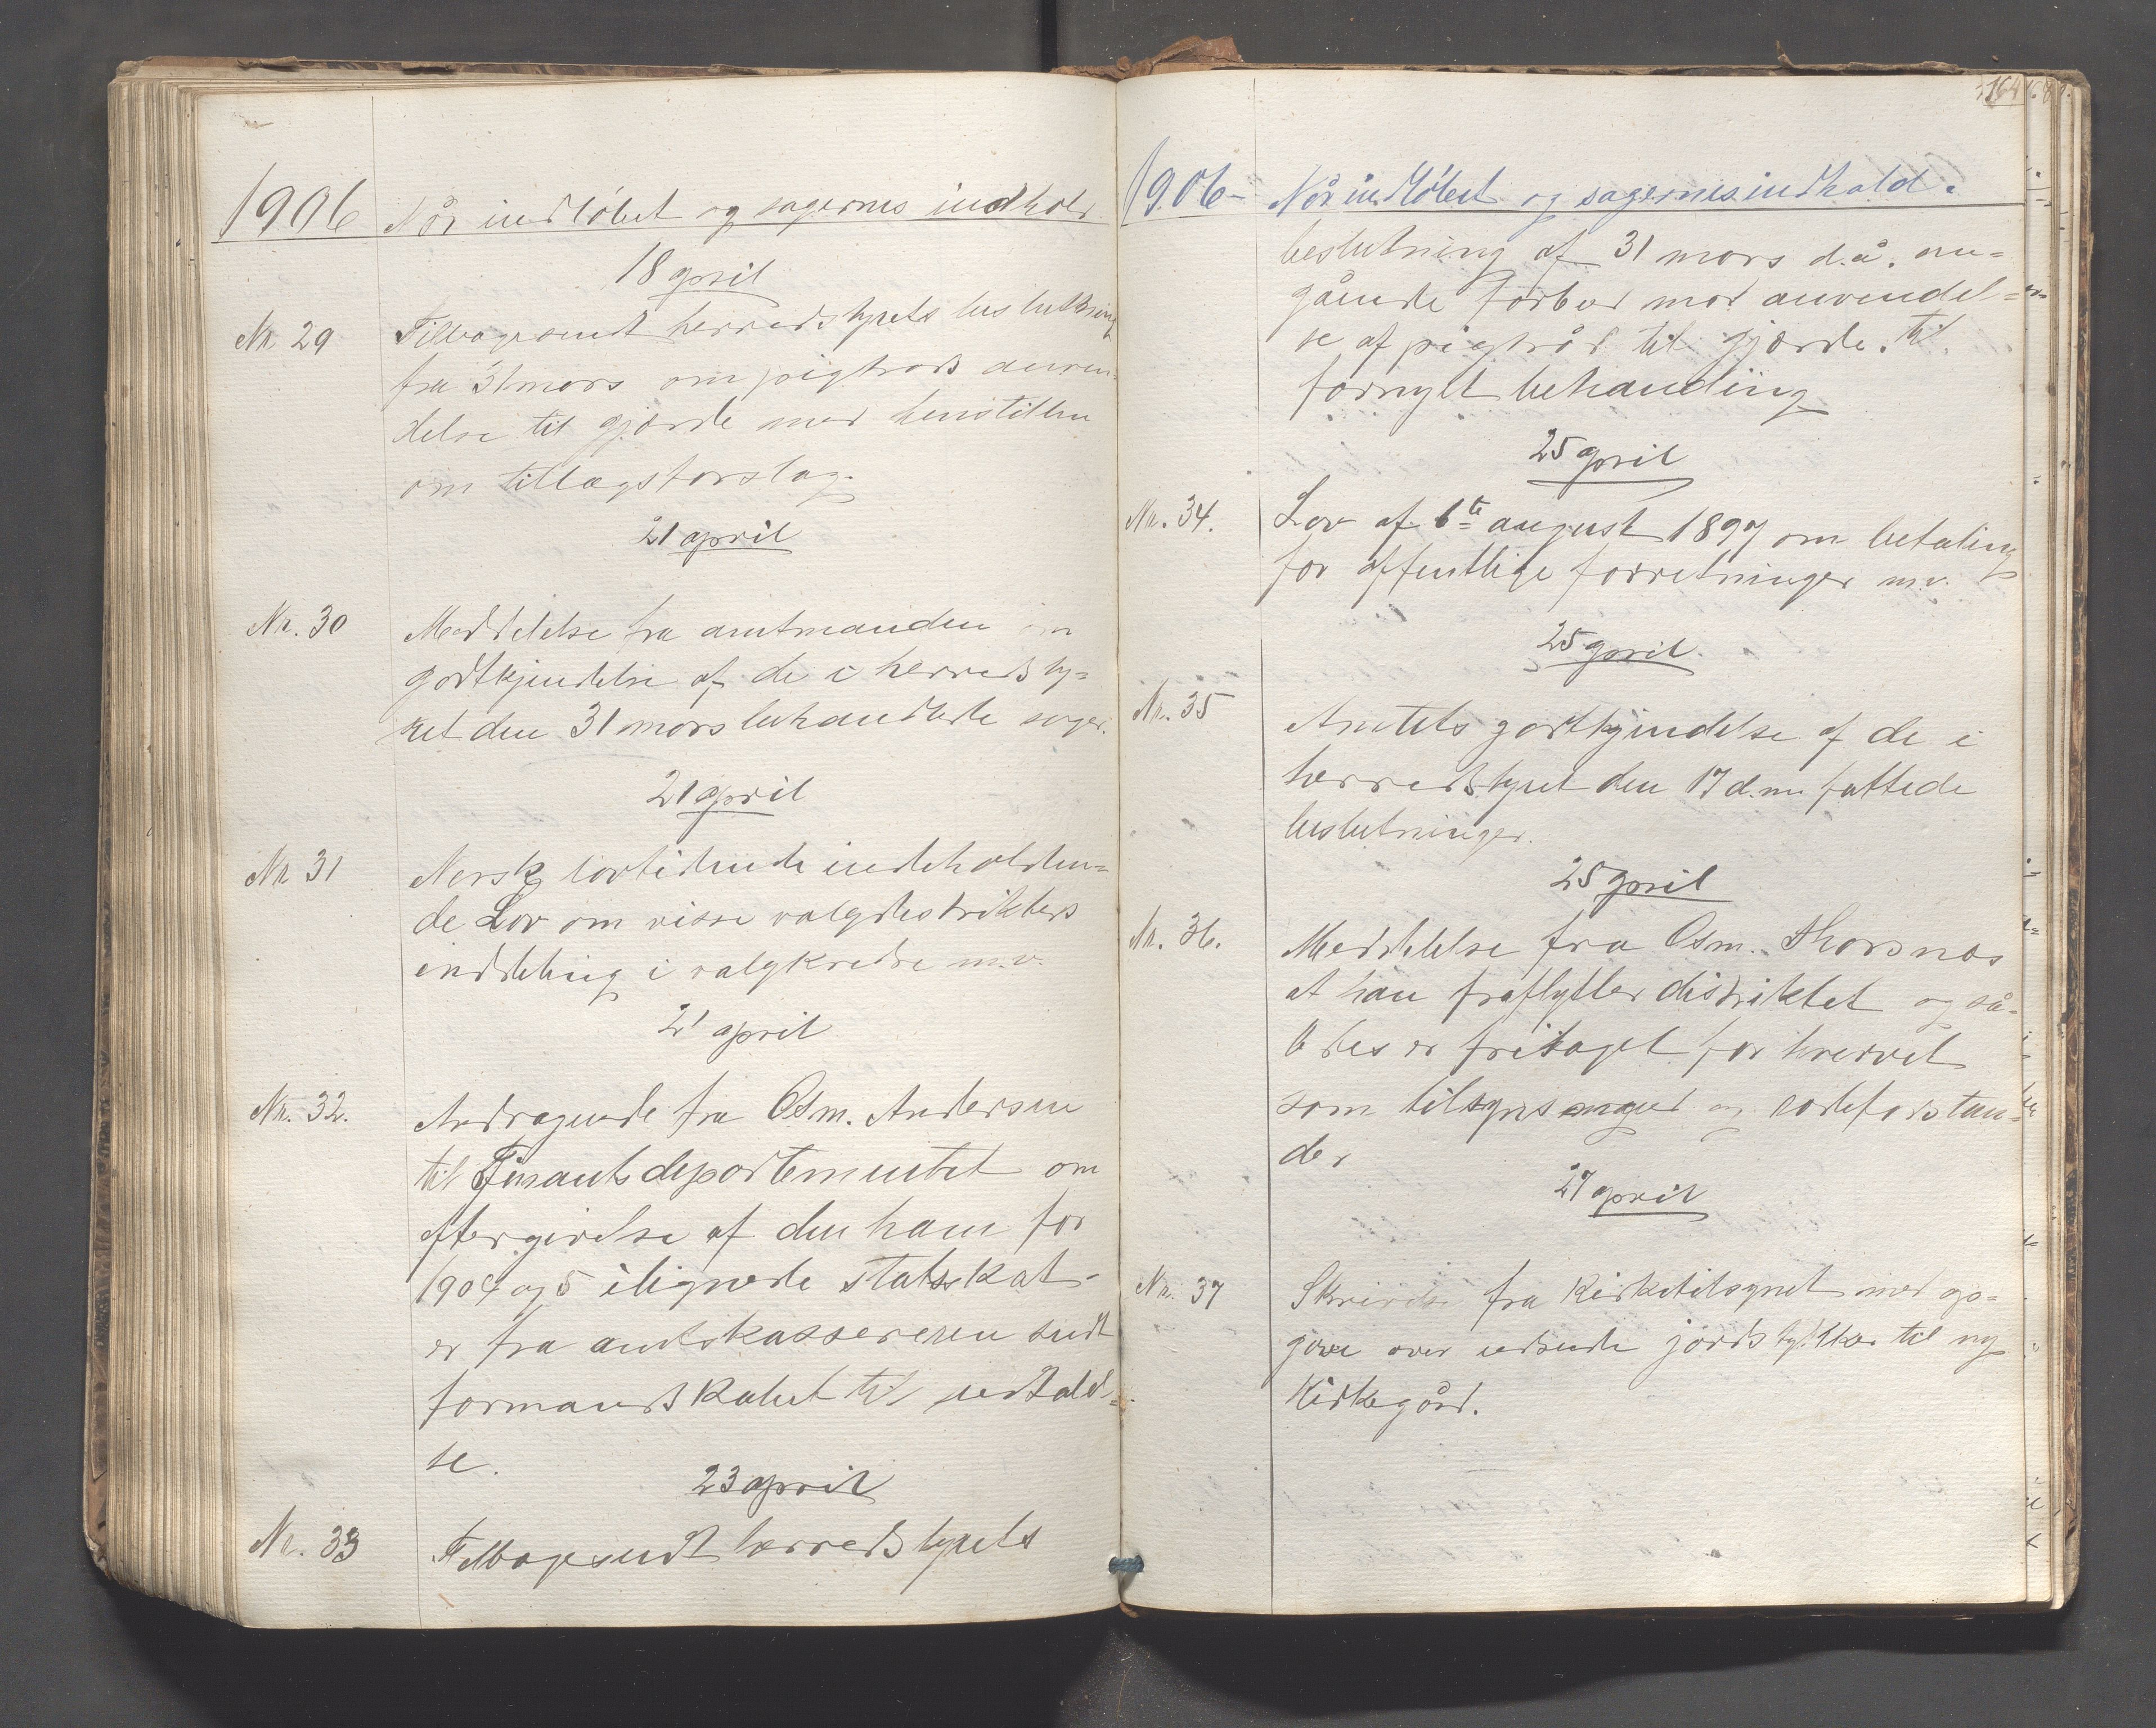 1906 Når indløbet og sagernes indhold
18 april
Nr. 29 Tilbagesendt herredstyrets beslutning
fra 31 mars om pigtråds anven-
delse til gjærde med henstillen
om tillægsforslag.
21 april
Nr. 30 Meddelelse fra amtmanden om
godtkjendelse af de i herredsty-
ret den 31 mars behandlede sager.
21 april
Nr 31 Norsk lovtidende indeholden-
de Lov om visse valgdistrikters
inddeling i valgkredse m.v.
21 april
Nr. 32. Andragende fra Osm. Andersen
til Finantsdepartementet om
eftergivelse af den ham for
1904 og 5 ilignede statsskat
er fra amtskassereren sendt
formandskabet til udtalel-
se.
23 april
Nr. 33 Tilbagesendt herredstyrets
164
1906 Når indløbet og sagernes indhold.
beslutning af 31 mars d.å. an-
gående forbud mod anvendel-
se af pigtråd til gjærde. til
fornyet behandling
25 april
Nr. 34. Lov af 6te august 1897 om betaling
for offentlige forretninger m.v.
25 april.
Nr. 35 Amtets godtkjendelse af de i
herredstyret den 17 d.m. fattede
beslutninger.
25 april
Nr. 36. Meddelelse fra Osm. Thorsnæs
at han fraflytter distriktet og så-
ledes er fritaget for hvervet
som tilsynsmand og rodeforstan-
der
27 april
Nr. 37 Skrivelse fra Kirketilsynet med op-
gave over udseede jordstykker til ny
Kirkegård.